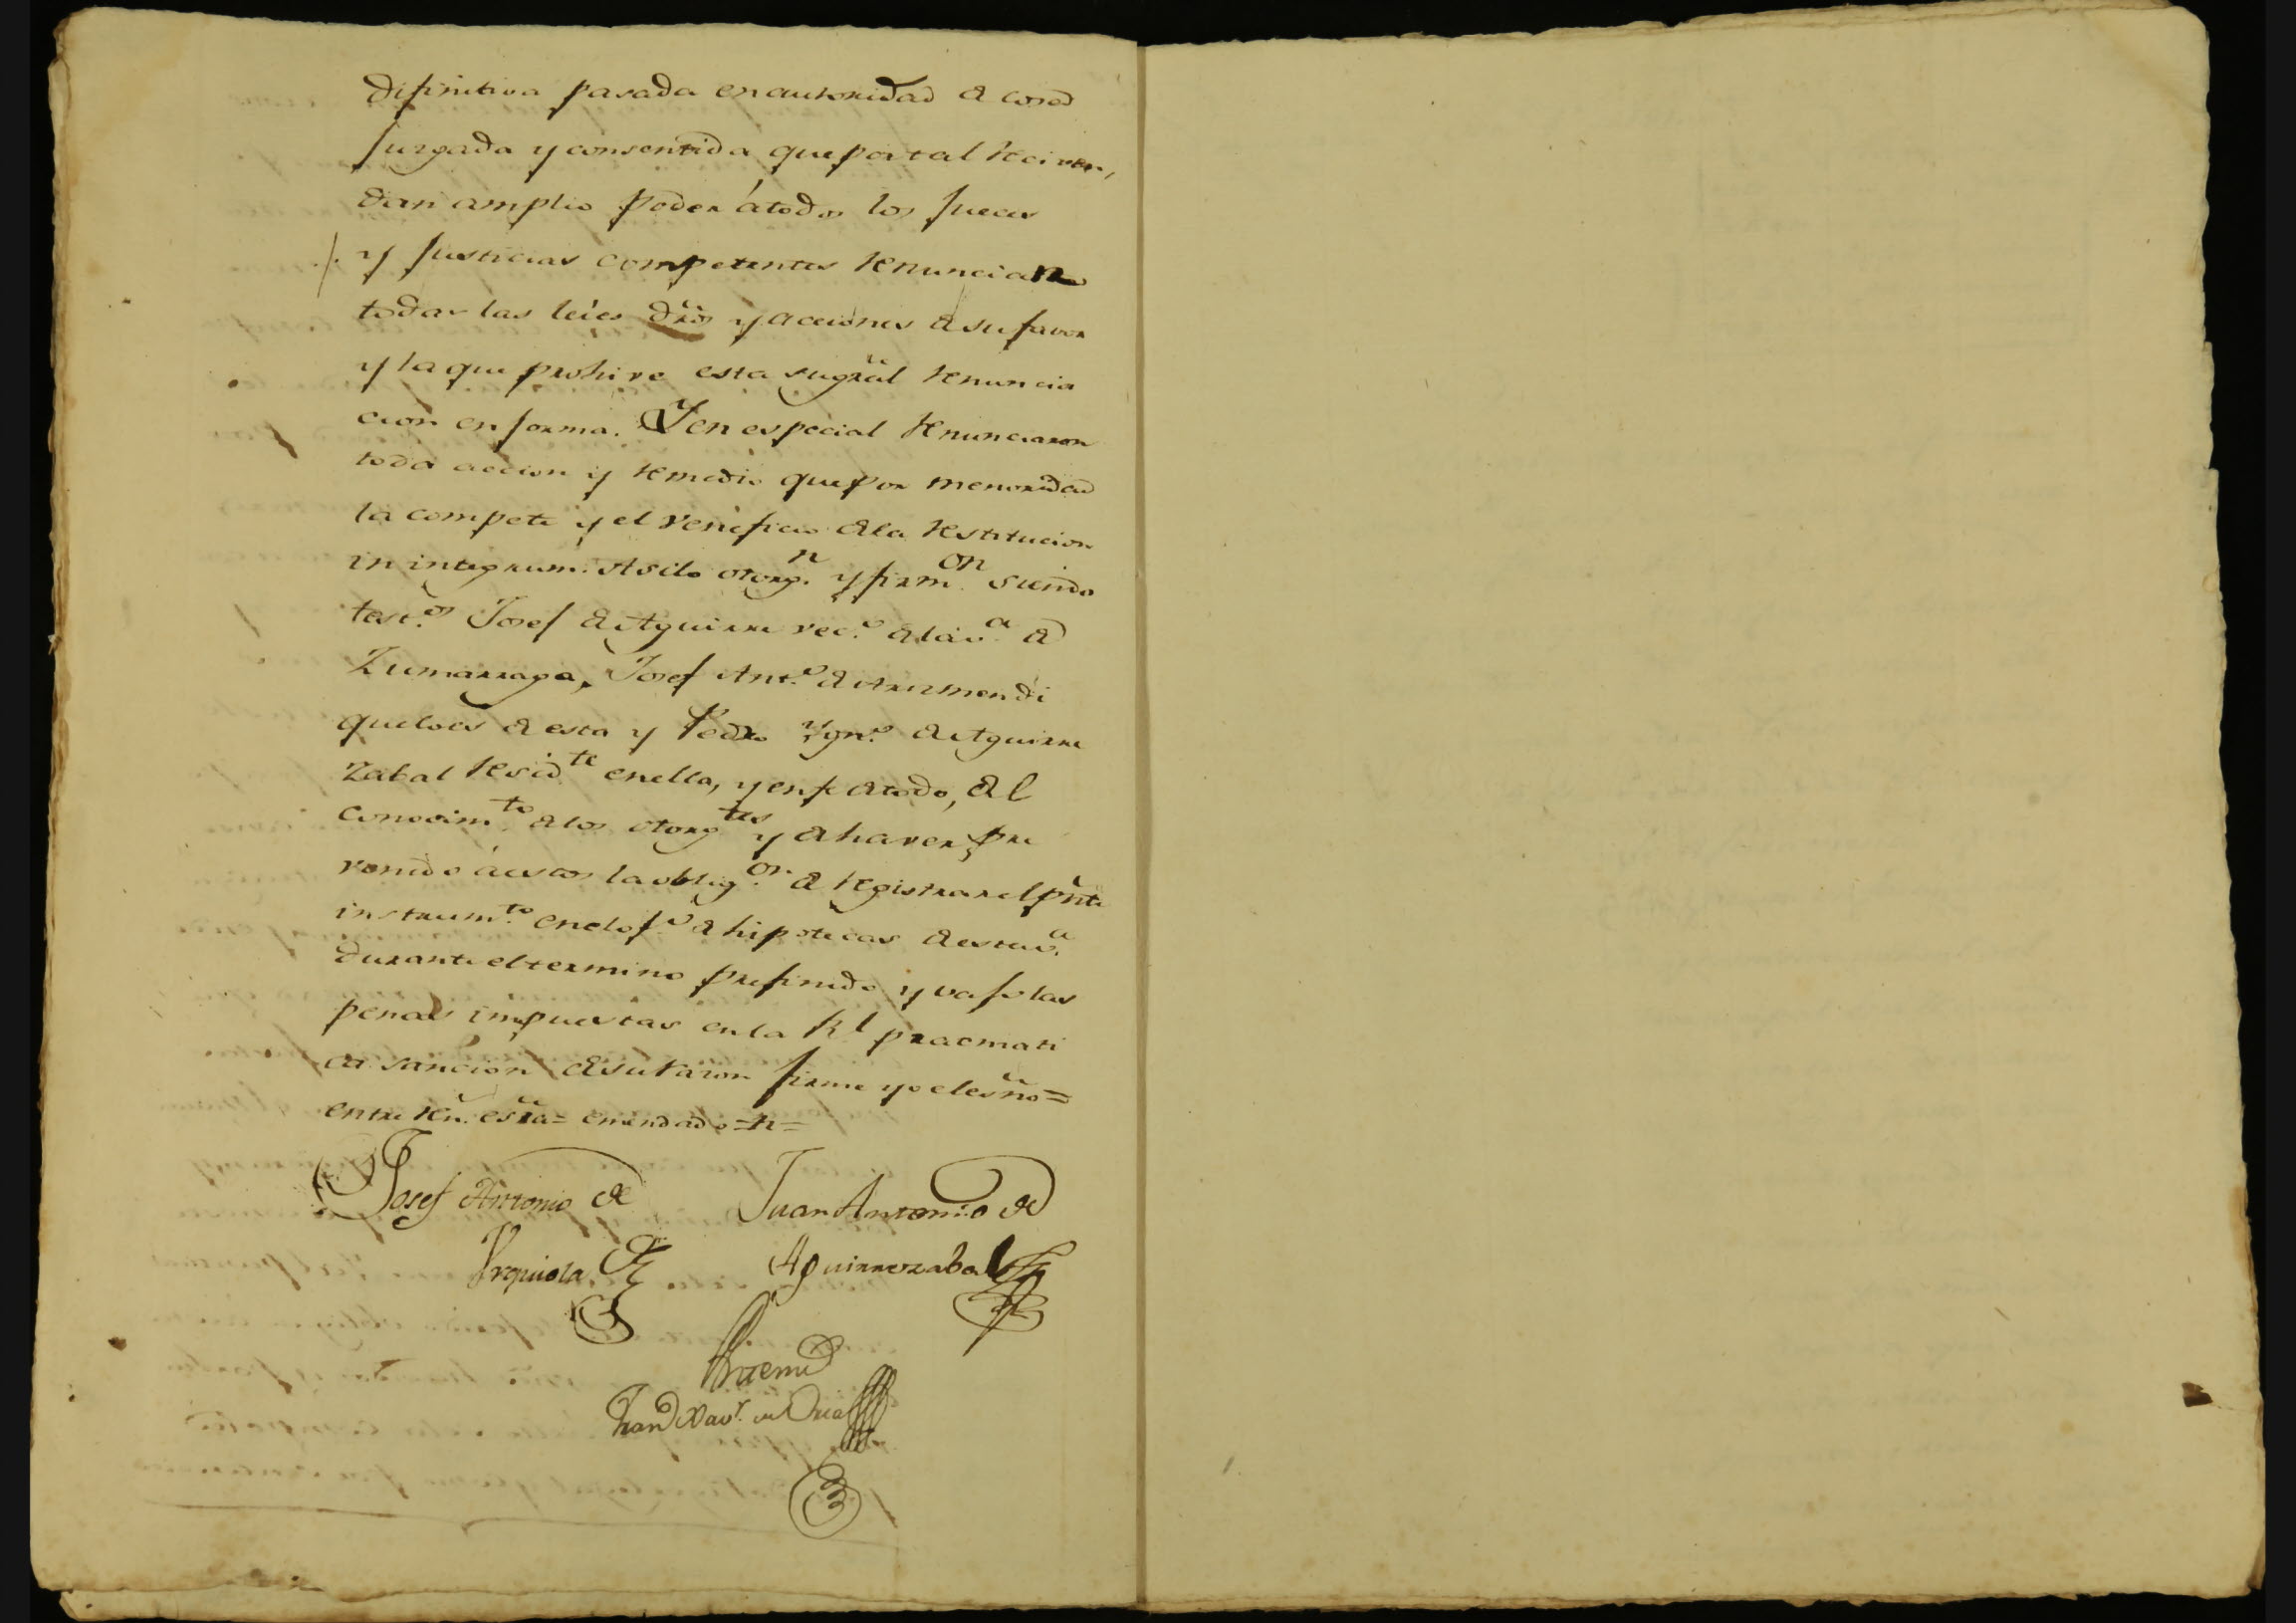 difinitiva pasada en autoridad de cosa
Juzgada y consentida que por tal Reciven,
dan amplio poder á todos los Jueces
y Justicias competentes Renuncian
todas las leies dr̃os y acciones de su favor
y la que prohive esta su gr̃al Renuncia
cion en forma. Y en especial Renunciaron
toda accion y Remedio que por menoridad
la compete y el veneficio de la Restitucion
in integrum. Asi lo otorg.n y firm.on siendo
test.os Josef de Aguirre vec.o de la v.a de
Zumarraga, Josef Ant.o de Arizmendi
que lo es de esta y Pedro Ygn.o de Aguirre
Zabal Resid.te en ella, y en fe de todo, de el
conocim.to de los otorg.tes y de haver pre
venido á estos la oblig.on de Registrar el pñte
instrum.to en el of.o de hipotecas de esta v.a
durante el termino prefinido y vajo las
penas impuestas en la R.l pracmati
ca sancion de su razon firme yo el esño =
entre Rñ. esr̃a = emendado = n =
Josef Antonio de Juan Antonio de
Urquiola Aguirrezabal
Antemi
Fran.co Xav.r de Oria